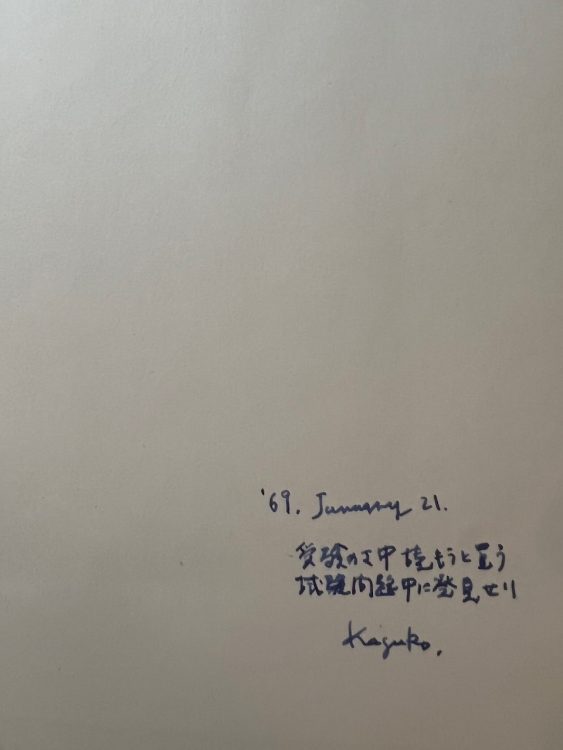 '69. January 21.
受験のさ中 読もうと買う
試験問題中に発見せり
Kazuko.